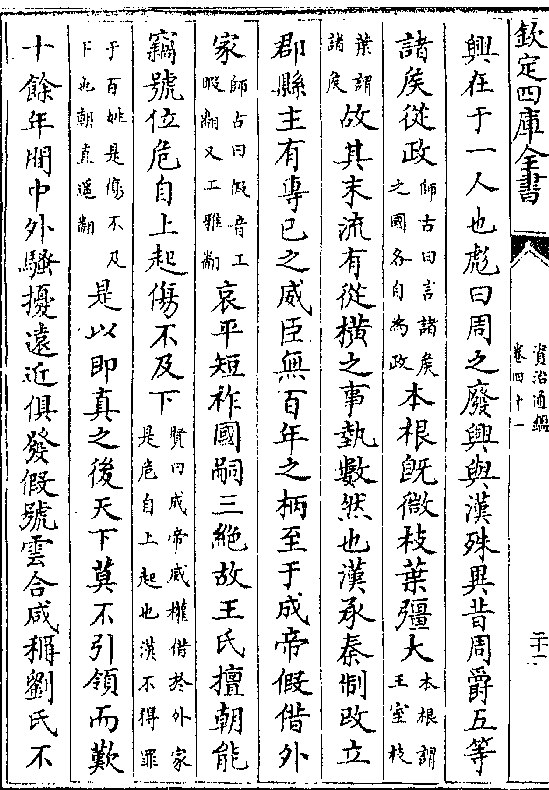 欽定四庫全書
資治通鑑
卷四十一
二十二
興在于一人也彪曰周之廢興與漢殊異昔周爵五等
諸侯從政師古曰言諸侯之國各自為政本根既微枝葉彊大本根謂王室枝
葉謂諸侯故其末流有從橫之事埶數然也漢承秦制改立
郡縣主有專已之威臣無百年之柄至于成帝假借外
家師古曰假音工暇翻又工雅翻哀平短祚國嗣三絶故王氏擅朝能
竊號位危自上起傷不及下賢曰成帝威權借於外家是危自上起也漢不得罪
于百姓是傷不及下也朝直遥翻是以即真之後天下莫不引領而歎
十餘年間中外騷擾遠近俱發假號雲合咸稱劉氏不